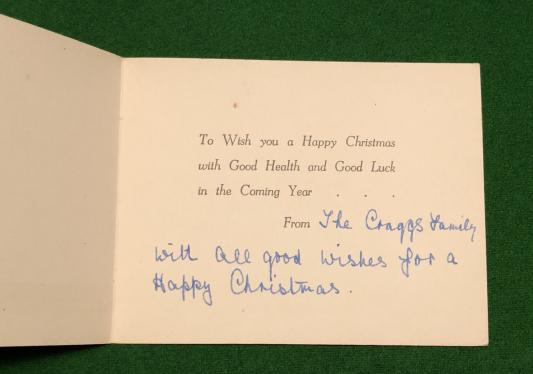 To Wish you a Happy Christmas
with Good Health and Good Luck
in the Coming Year . . .
From The Craggs Family
With all good wishes for a
Happy Christmas.